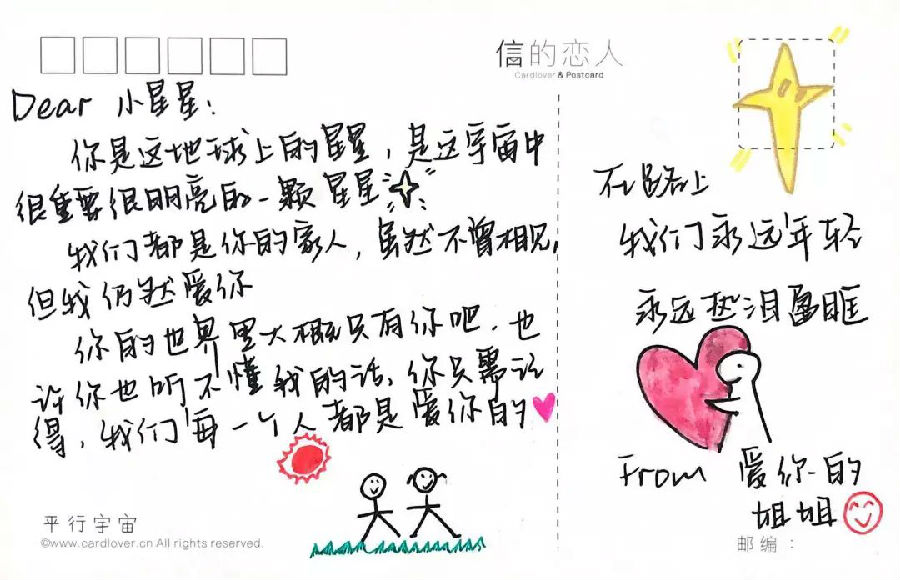 信的恋人
Cardlover & Postcard
Dear 小星星：
你是这地球上的星星，是这宇宙中
很重要很明亮的一颗星星
我们都是你的家人，虽然不曾相见，
但我仍然爱你
你的世界里大概只有你吧，也
许你也听不懂我的话，你只需记
得，我们每一个人都是爱你的
在路上
我们永远年轻
永远热泪盈眶
From 爱你的
姐姐
平行宇宙
©www.cardlover.cn All rights reserved.
邮编：